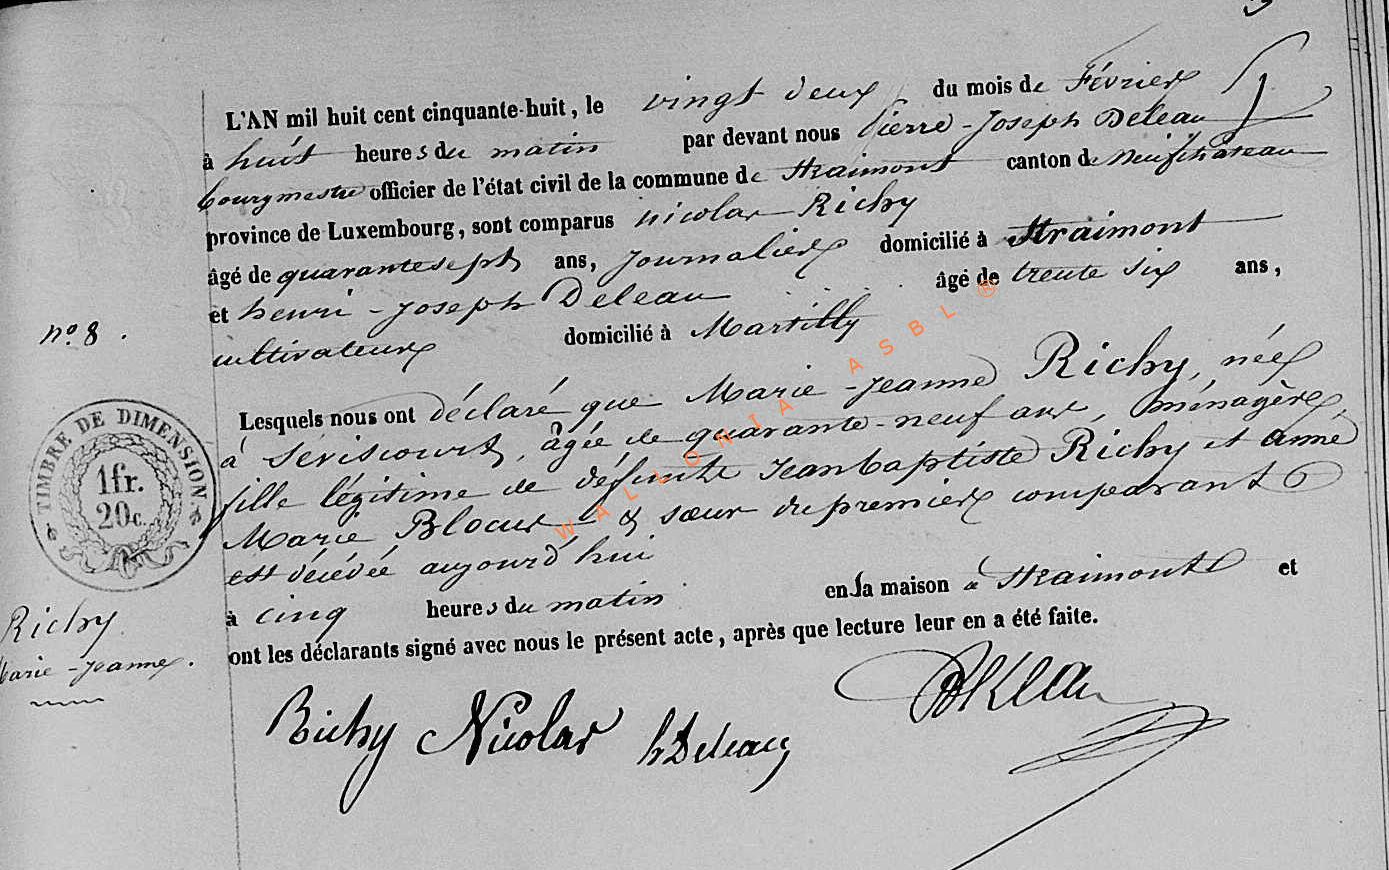 L'AN mil huit cent cinquante-huit, le vingt deux du mois de Février
à huit heures du matin par devant nous Pierre-Joseph Deleau
bourgmestre officier de l'état civil de la commune de Straimont canton de neufchateau
province de Luxembourg, sont comparus nicolas Richy
âgé de quarante sept ans, Journalier domicilié à Straimont
et henri-Joseph Deleau âgé de trente six ans,
cultivateur domicilié à Martilly
n° 8.
Lesquels nous ont déclaré que Marie-Jeanne Richy, née
à Sériscourt, âgée de quarante-neuf ans, ménagère,
fille légitime de défunts Jean baptiste Richy et anne
Marie Blocus & sœur du premier comparant
est décédée aujourd'hui
à cinq heures du matin en sa maison à Straimont et
ont les déclarants signé avec nous le présent acte, après que lecture leur en a été faite.
TIMBRE DE DIMENSION
1fr.
20c.
Richy
Marie-Jeanne.
Richy Nicolas h Deleau
WALLONIA ASBL ®